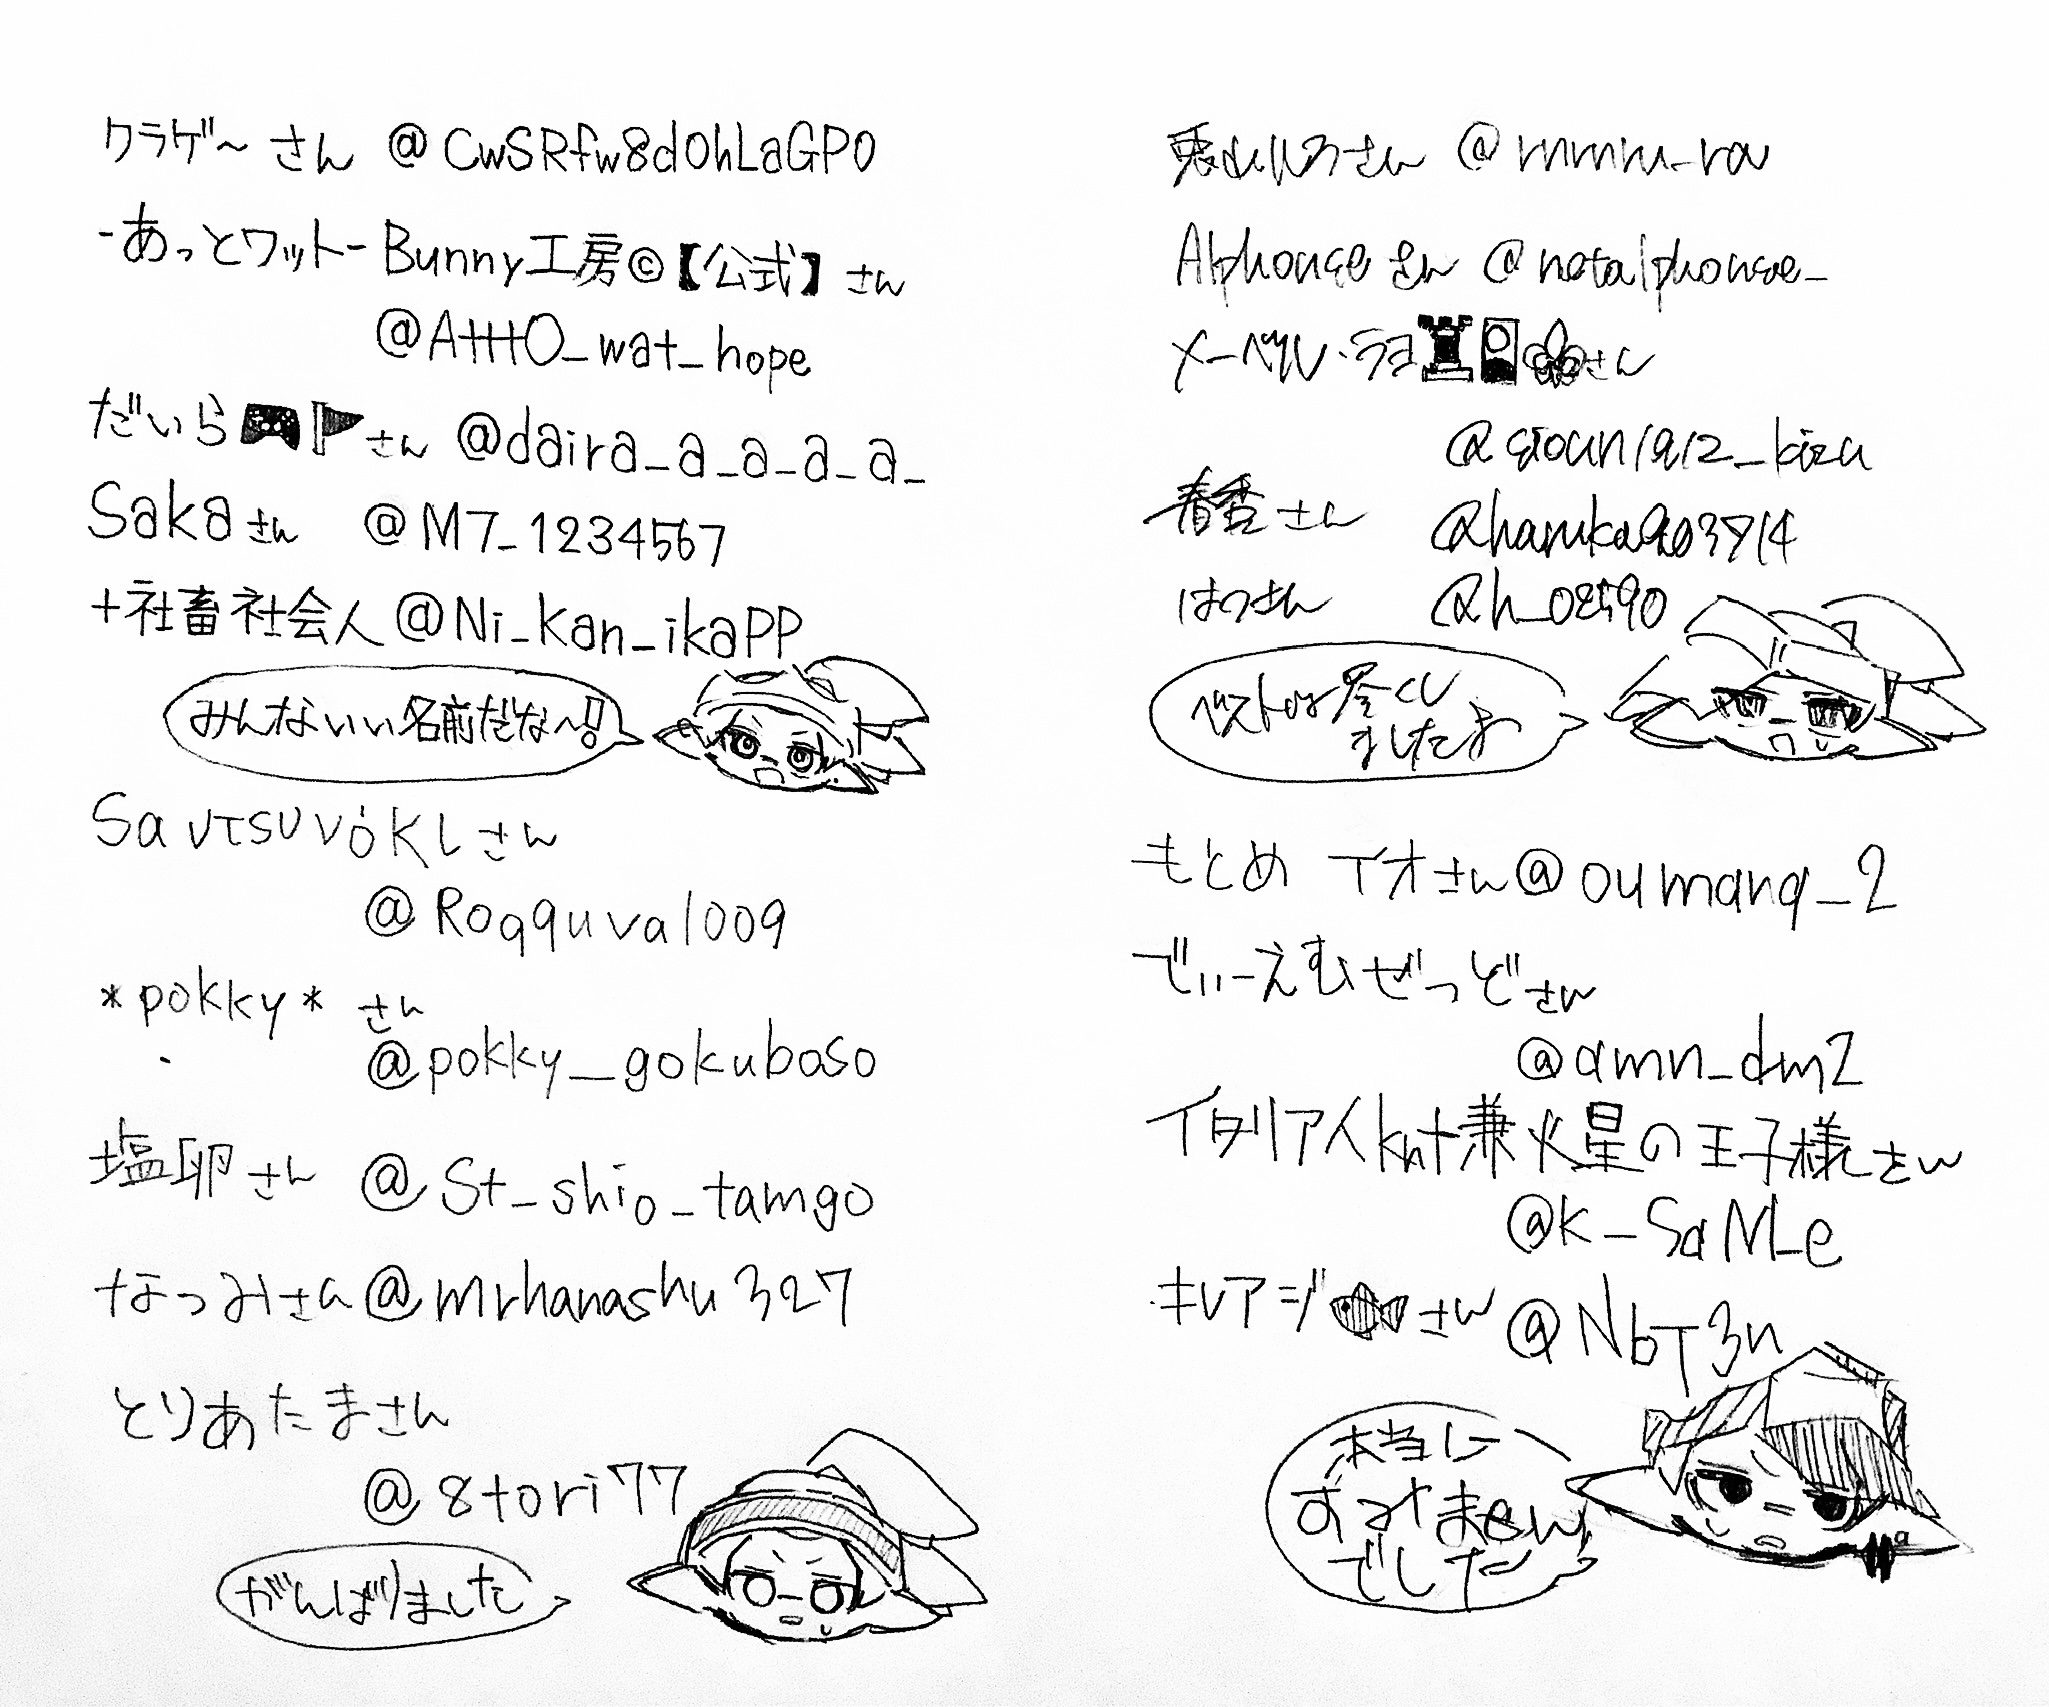 クラゲ～さん @CwSRfw8dOhLaGPO
-あっとワット-Bunny工房©【公式】さん
@AtttO_wat_hope
だいら🎮🚩さん @daira_a_a_a_a_
Sakaさん @M7_1234567
+社畜社会人 @Ni_Kan_ikaPP
みんないい名前だな〜!!
さん
@Roqquva1009
*pokky* さん
@pokky_gokuboso
塩卵さん @St_shio_tamgo
なつみさん @mrhanashu327
とりあたまさん
@8tori77
がんばりました
さん @mmm_ra
Alphonseさん @notalphonse_
メーベル・ラヨさん
春香さん @haruka903714
はつさん @h_02590
ベストは尽くし
ましたよ
もとめ イオさん @oumanq_2
でぃーえむぜっどさん
@amn_dm2
イタリア人knt兼火星の王子様さん
@K_SaML_e
キレアジ🐟さん @NbT3n
本当に
すみません
でした